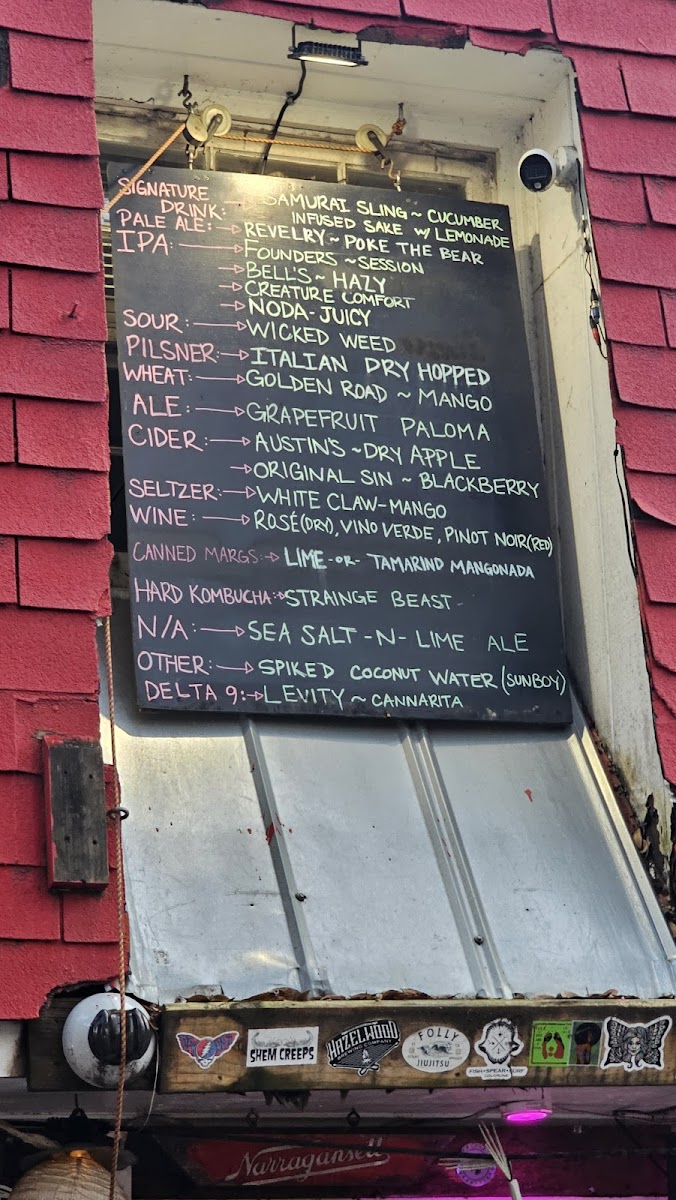 SIGNATURE DRINK: → SAMURAI SLING ~ CUCUMBER
INFUSED SAKE W/ LEMONADE
PALE ALE: → REVELRY ~ POKE THE BEAR
IPA: → FOUNDERS ~ SESSION
→ BELL'S ~ HAZY
→ CREATURE COMFORT
→ NODA - JUICY
SOUR: → WICKED WEED
PILSNER: → ITALIAN DRY HOPPED
WHEAT: → GOLDEN ROAD ~ MANGO
ALE: → GRAPEFRUIT PALOMA
CIDER: → AUSTIN'S ~ DRY APPLE
→ ORIGINAL SIN ~ BLACKBERRY
SELTZER: → WHITE CLAW - MANGO
WINE: → ROSÉ (DRY), VINO VERDE, PINOT NOIR (RED)
CANNED MARGS: → LIME - OR - TAMARIND MANGONADA
HARD KOMBUCHA: → STRAINGE BEAST -
N/A: → SEA SALT - N - LIME ALE
OTHER: → SPIKED COCONUT WATER (SUNBOY)
DELTA 9: → LEVITY ~ CANNARITA
SHEM CREEPS
HAZELWOOD
BREWING COMPANY
FOLLY
JIUJITSU
FISH • SPEAR • SURF
Narragansett